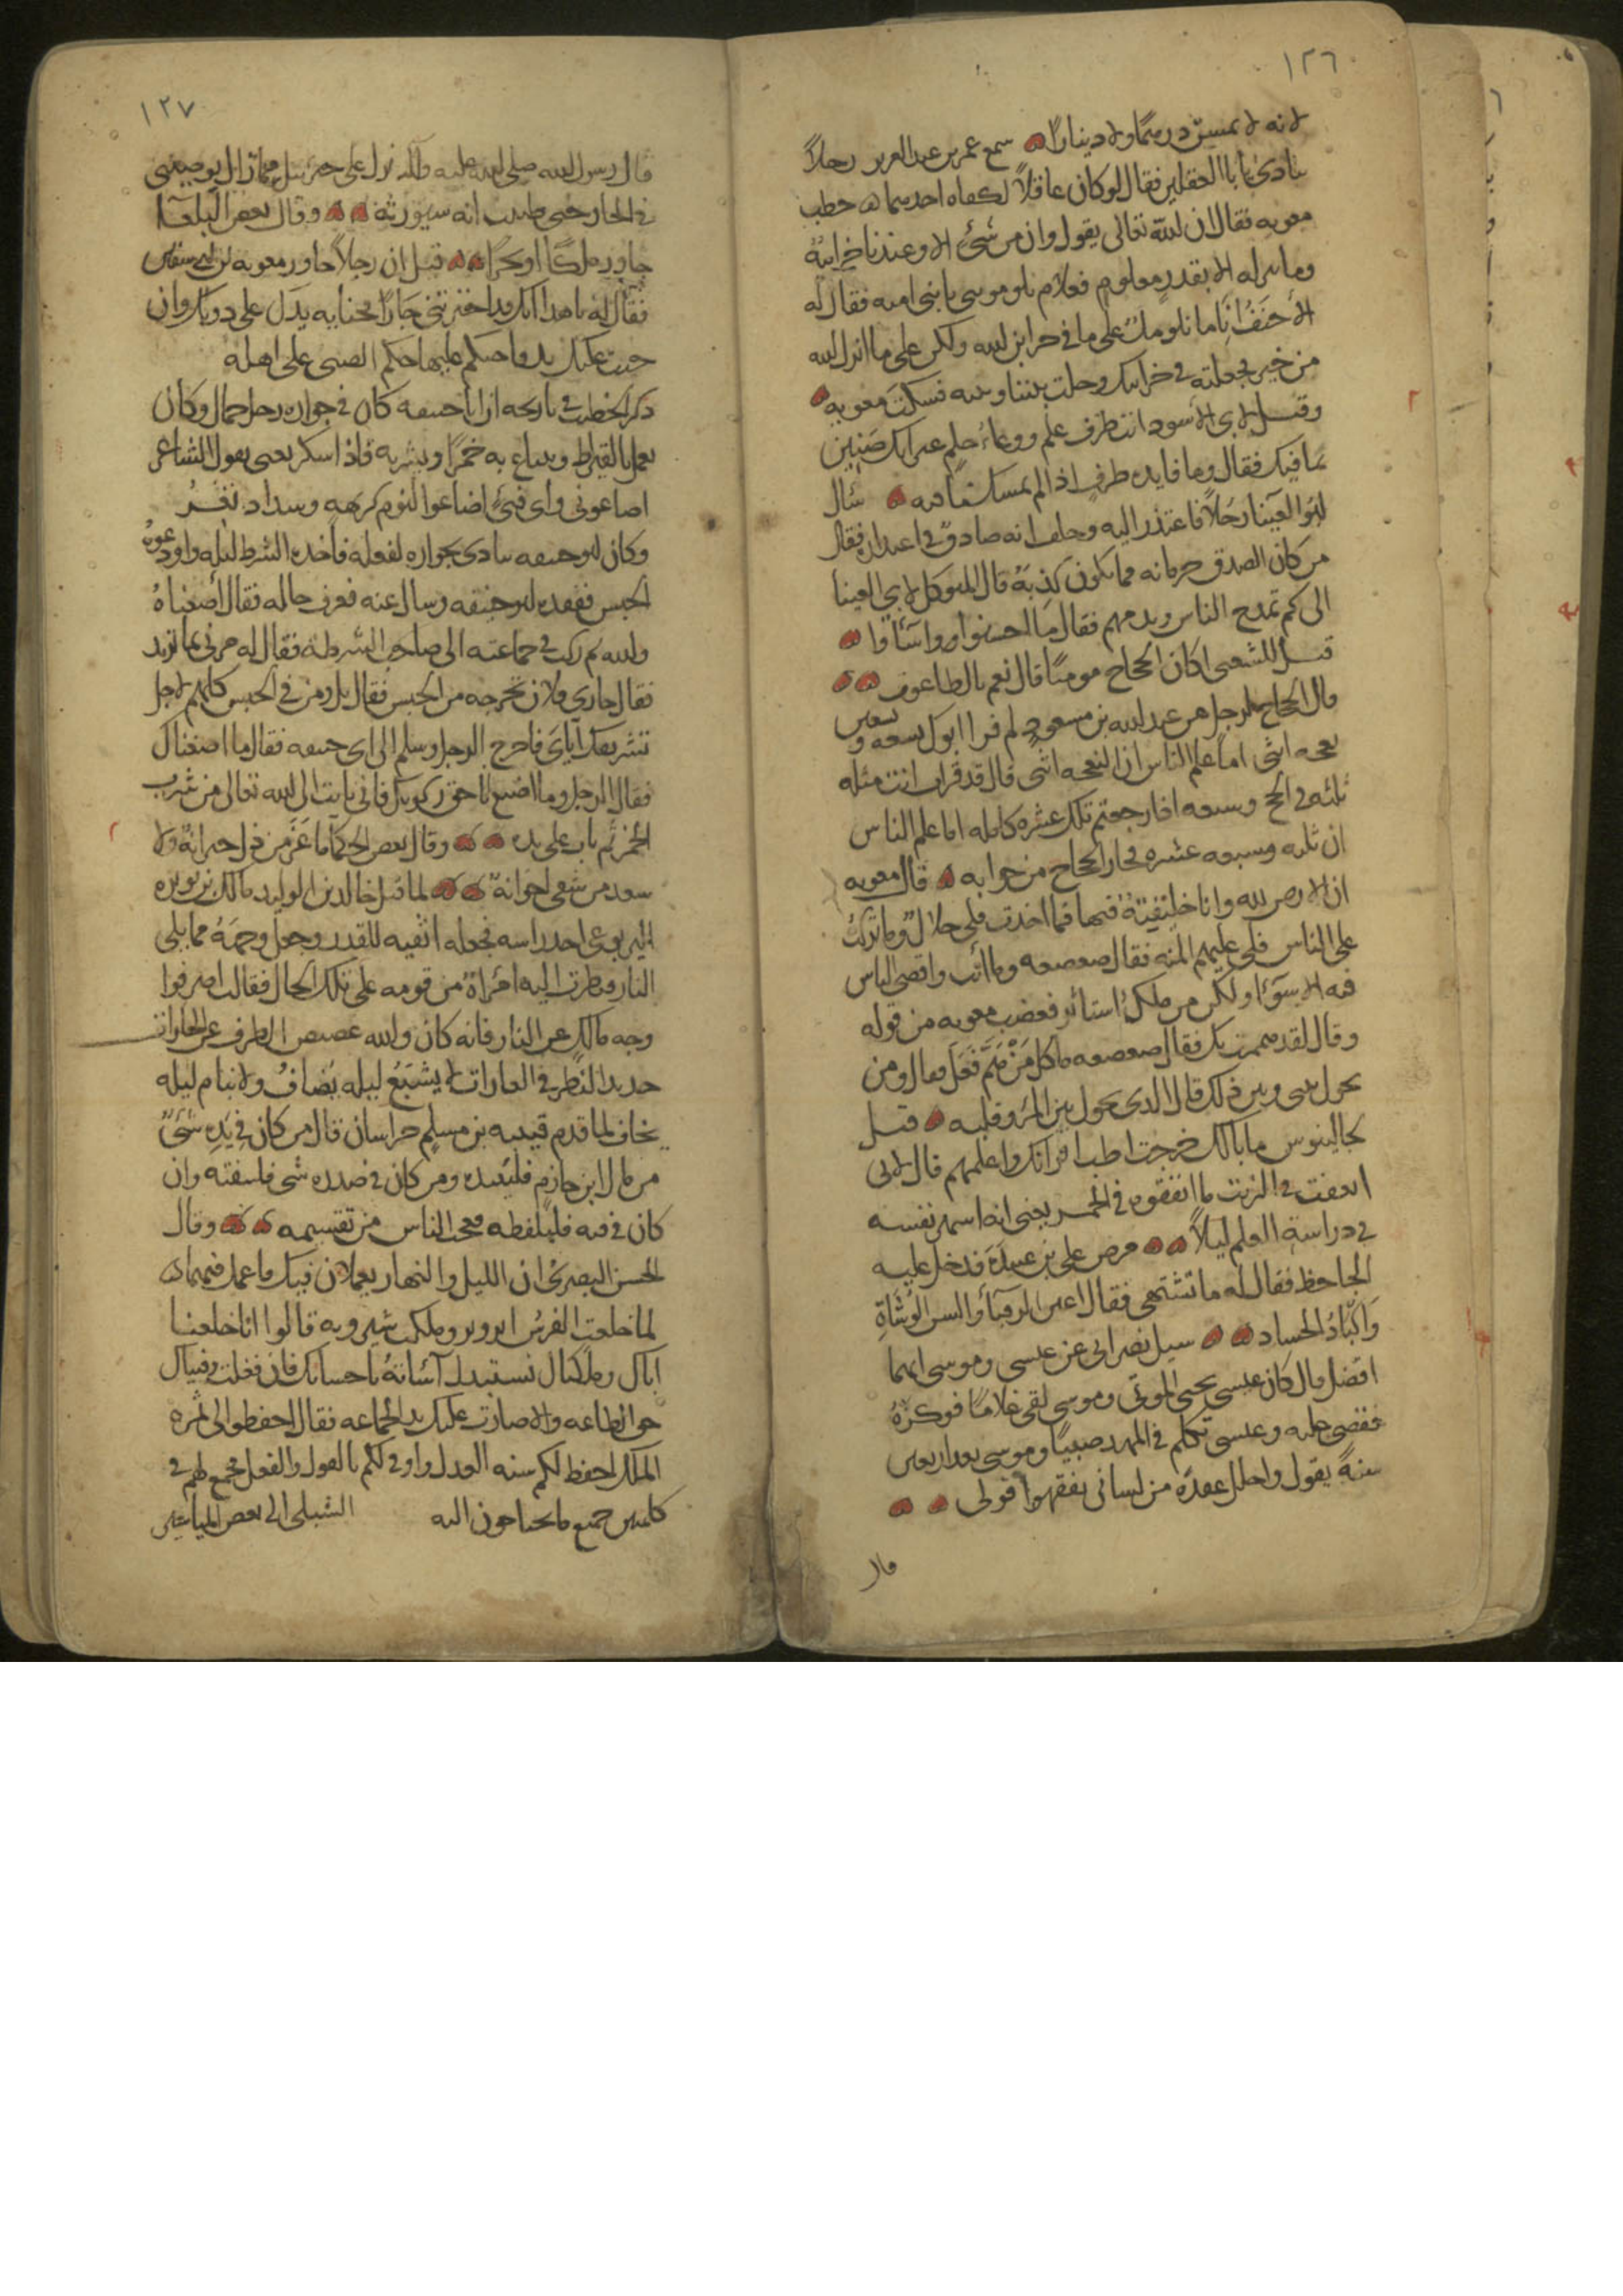 ١٢٦
لانه لا يمسّ درهمًا ولا دينارًا سمع عمر بن عبد العزيز رجلاً
ينادى يا ابا العقلين فقال لو كان عاقلاً لكفاه احدهما خطب
معويه فقال ان الله تعالى يقول وان من شئ الا وعندنا خزائنه
وما ننزله الا بقدر معلوم فعلام تلومونى يا بنى اميه فقال له
الأحنف انّا ما نلومك على ما فى خزاين الله ولكن على ما انزل الله
من خيره فجعلته فى خزاينك وحلت بيننا وبينه فسكت معويه
وقيل لابى الأسود انت ظرف علم ووعاء حلم غير انك ضنين
بما فيك فقال وما فايده ظرف اذا لم يمسك ما فيه سأل
ابو العينا رجلاً فاعتذر اليه وحلف انه صادق فى اعتذاره فقال
من كان الصدق حرمانه فما يكون كذبه قال المتوكل لابى العينا
الى كم تمدح الناس وتذمهم فقال ما احسنوا واساؤا
قيل للشعبى اكان الحجاج مومنًا قال نعم بالطاغوت
قال الحجاج لرجل من عبد الله بن مسعود لم قرا ابوك تسعه وتسعين
نعجه انثى اما علم الناس ان النعجه انثى قال قد قرات انت مثله
ثلثه فى الحج وسبعه اذا رجعتم تلك عشره كامله اما علم الناس
ان ثلثه وسبعه عشره فحار الحجاج من جوابه قال معويه
ان الارض لله وانا خليفته فيها فما اخذت فلى حلال وما تركت
على الناس فلى عليهم المنه فقال صعصعه وما انت واقصى الناس
فيه الا سوآء ولكن من ملك استأثر فغضب معويه من قوله
وقال لقد هممت بك فقال صعصعه ما كل من همّ فعل فقال ومن
يحول بينى وبين ذلك قال الذى يحول بين المرء وقلبه قيل
لجالينوس ما بالك خرجت اطب اقرانك واعلمهم قال لانى
انفقت فى الزيت ما انفقوه فى الخمر يعنى انه اسهر نفسه
فى دراسة العلم ليلاً مرض على بن عبيدة فدخل عليه
الجاحظ فقال له ما تشتهى فقال اعين الرقبآء والسن الوشاة
واكباد الحساد سيل نصرانى عن عيسى وموسى ايهما
افضل قال كان عيسى يحيى الموتى وموسى لقى غلامًا فوكزه
فقضى عليه وعيسى تكلم فى المهد صبيًا وموسى بعد اربعين
سنة يقول واحلل عقدة من لسانى يفقهوا قولى
قال
١٢٧
قال رسول الله صلى الله عليه وآله نزل على جبرئيل فما زال يوصينى
فى الجار حتى ظننت انه سيورثه وقال بعض البلغآء
جاور ملكًا او بحرًا قيل ان رجلاً جاور معويه بن ابى سفين
فقال له يا هذا انك قد اخترتنى جارًا فجنايه يدك على دونك وان
جنت عليك يد فاحتكم عليها حكم الصبى على اهله
ذكر الخطيب فى تاريخه ان ابا حنيفه كان فى جواره رجل حمال وكان
يعمل بالقيراط ويبتاع به خمرًا ويشربه فاذا سكر يغنى بقول الشاعر
اضاعونى واى فتىً اضاعوا ليوم كريهه وسداد ثغر
وكان ابو حنيفه يتاذى بجواره لفعله فاخذه الشرط ليله واودعوه
الحبس ففقده ابو حنيفه وسال عنه فعرف حاله فقال اضعناه
والله ثم ركب فى جماعته الى صاحب الشرطه فقال له مرنى بما تريد
فقال جارى فلان تخرجه من الحبس فقال بل ومن فى الحبس كلهم لاجل
تشريفك اياى فاخرج الرجل وسلم الى ابى حنيفه فقال ما اضعناك
فقال الرجل وما اضيع لاحق ركوبك فانى تايب الى الله تعالى من شرب
الخمر ثم تاب على يده وقال بعض الحكما ما عزّ من ذلّ جيرانه ولا
سعد من شقى اخوانه لما قتل خالد بن الوليد مالك بن نويره
اليربوعى اخذ راسه فجعله اثفيه للقدر وجعل وجهه مما يلى
النار فنظرت اليه امراة من قومه على تلك الحال فقالت اصرفوا
وجه مالك عن النار فانه كان والله غضيض الطرف عن الجارات
حديد النظر فى الغارات لا يشبع ليله يضاف ولا ينام ليله
يخاف لما قدم قتيبه بن مسلم خراسان قال من كان فى يده شئ
من مال ابن خازم فلينبذه ومن كان فى صدره شى فلينفثه وان
كان فى فيه فليلفظه فعجب الناس من تقسيمه وقال
الحسن البصرى ان الليل والنهار يعملان فيك فاعمل فيهما
لما خلعت الفرس ابرويز وملكت شيرويه قالوا انا خلعنا
اباك وملكناك نستبدل آساته باحسانك فان فعلت وفينا لك
حق الطاعه والا صارت عليك يد الجماعه فقال احفظوا لى ثمره
الملك احفظ لكم سنه العدل واوفى لكم بالقول والفعل فجمع لهم فى
كلمتين جميع ما يحتاجون اليه الشبلى الى بعض المياسير